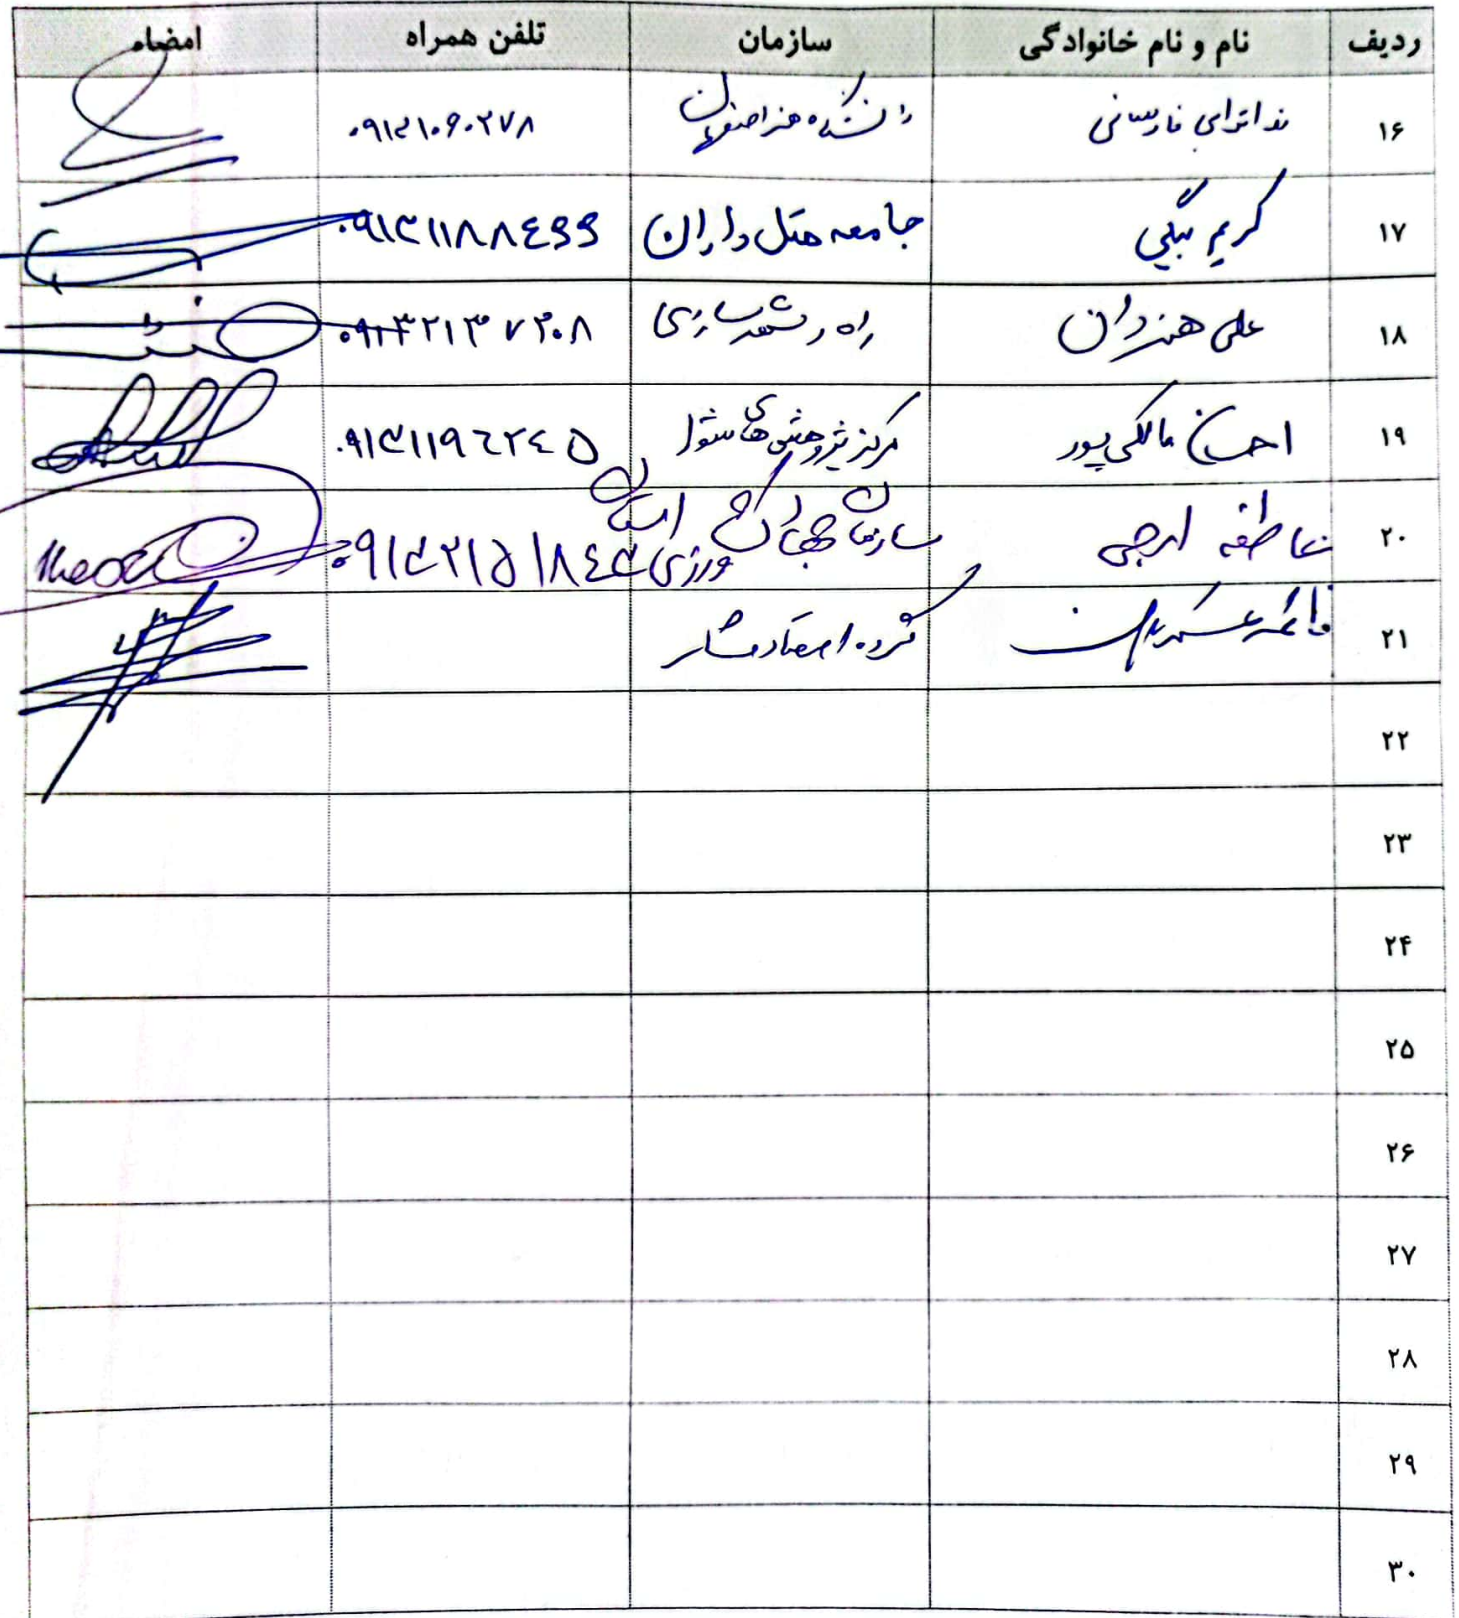 ردیف نام و نام خانوادگی سازمان تلفن همراه امضاء
۱۶ ندا ترابی فارسانی دانشگاه هنر اصفهان ۰۹۱۳۱۰۶۰۲۷۸
۱۷ کریم بیگی جامعه هتل داران ۰۹۱۳۱۱۸۸٤۶۶
۱۸ علی هنردان راه و شهرسازی
۱۹ احسان مالکی پور مرکز پژوهش های شورا ۰۹۱۳۱۱۹٤۲٤۵
۲۰ عاطفه ایرجی سازمان جهاد کشاورزی استان ۰۹۱۳۲۱۵۱۸٤۳
۲۱ فائمه گروه اقتصاد
۲۲
۲۳
۲۴
۲۵
۲۶
۲۷
۲۸
۲۹
۳۰